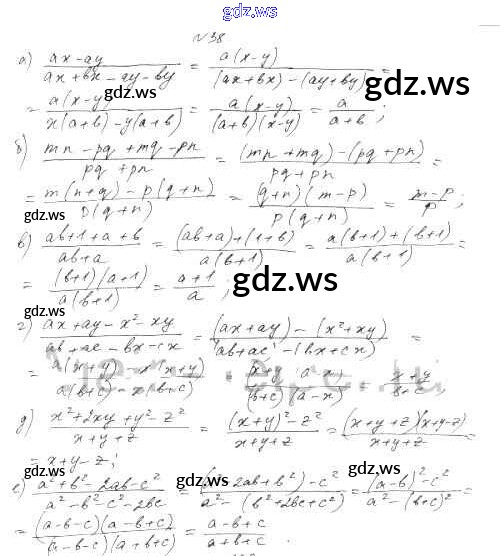 gdz.ws
N 38
а) (ax - ay)/(ax + bx - ay - by) = a(x-y)/((ax+bx) - (ay+by)) =
= a(x-y)/(x(a+b) - y(a+b)) = a(x-y)/((a+b)(x-y)) = a/(a+b);
gdz.ws
gdz.ws
б) (mn - pq + mq - pn)/(pq + pn) = ((mn + mq) - (pq + pn))/(pq + pn) =
= (m(n+q) - p(q+n))/(p(q+n)) = ((q+n)(m-p))/(p(q+n)) = (m-p)/p;
gdz.ws
gdz.ws
в) (ab+1+a+b)/(ab+a) = ((ab+a)+(1+b))/(a(b+1)) = (a(b+1)+(b+1))/(a(b+1)) =
= ((b+1)(a+1))/(a(b+1)) = (a+1)/a;
gdz.ws
gdz.ws
г) (ax+ay-x²-xy)/(ab+ac-bx-cx) = ((ax+ay) - (x²+xy))/((ab+ac) - (bx+cx)) =
= (a(x+y) - x(x+y))/(a(b+c) - x(b+c)) = ((x+y)(a-x))/((b+c)(a-x)) = (x+y)/(b+c)
д) (x²+2xy+y²-z²)/(x+y+z) = ((x+y)²-z²)/(x+y+z) = ((x+y+z)(x+y-z))/(x+y+z) =
gdz.ws
= x+y-z;
gdz.ws
gdz.ws
е) (a²+b²-2ab-c²)/(a²-b²-c²-2bc) = ((a²-2ab+b²)-c²)/(a²-(b²+2bc+c²)) = ((a-b)²-c²)/(a²-(b+c)²) =
= ((a-b-c)(a-b+c))/((a-b-c)(a+b+c)) = (a-b+c)/(a+b+c).
gdz.ws